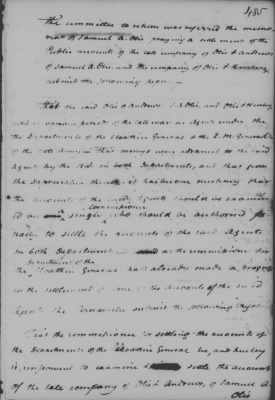 485
The committee to whom was referred the memo
rial of Samuel A. Otis praying a settlement of the
Public accounts of the late company of Otis & Andrews
of Samuel A Otis and the company of Otis & Henley
submit the following report —
That the said Otis & Andrews, S A Otis, and Otis & Henley
were at various periods of the late war Agents under the
the Departments of the Cloathier General & the Q. M. General
of the late Army — That moneys were advanced to the said
Agents by the U.S. in both Departments, and that from
the it has become necessary that
the accounts of the said Agents should be examin
ed by a single commissioner who should be authorised fi
nally to settle the accounts of the said Agents
in both Departments — as the commissioner for
Department of the
the Cloathier General has already made a progress
in the settlement of some of the Accounts of the said
Agents the Committee submit the following
That the commissioner for settling the accounts of
the Department of the Cloathier General be, and hereby
is, impowered to examine & settle the accounts
of the late company of Otis & Andrews, of Samuel A.
Otis